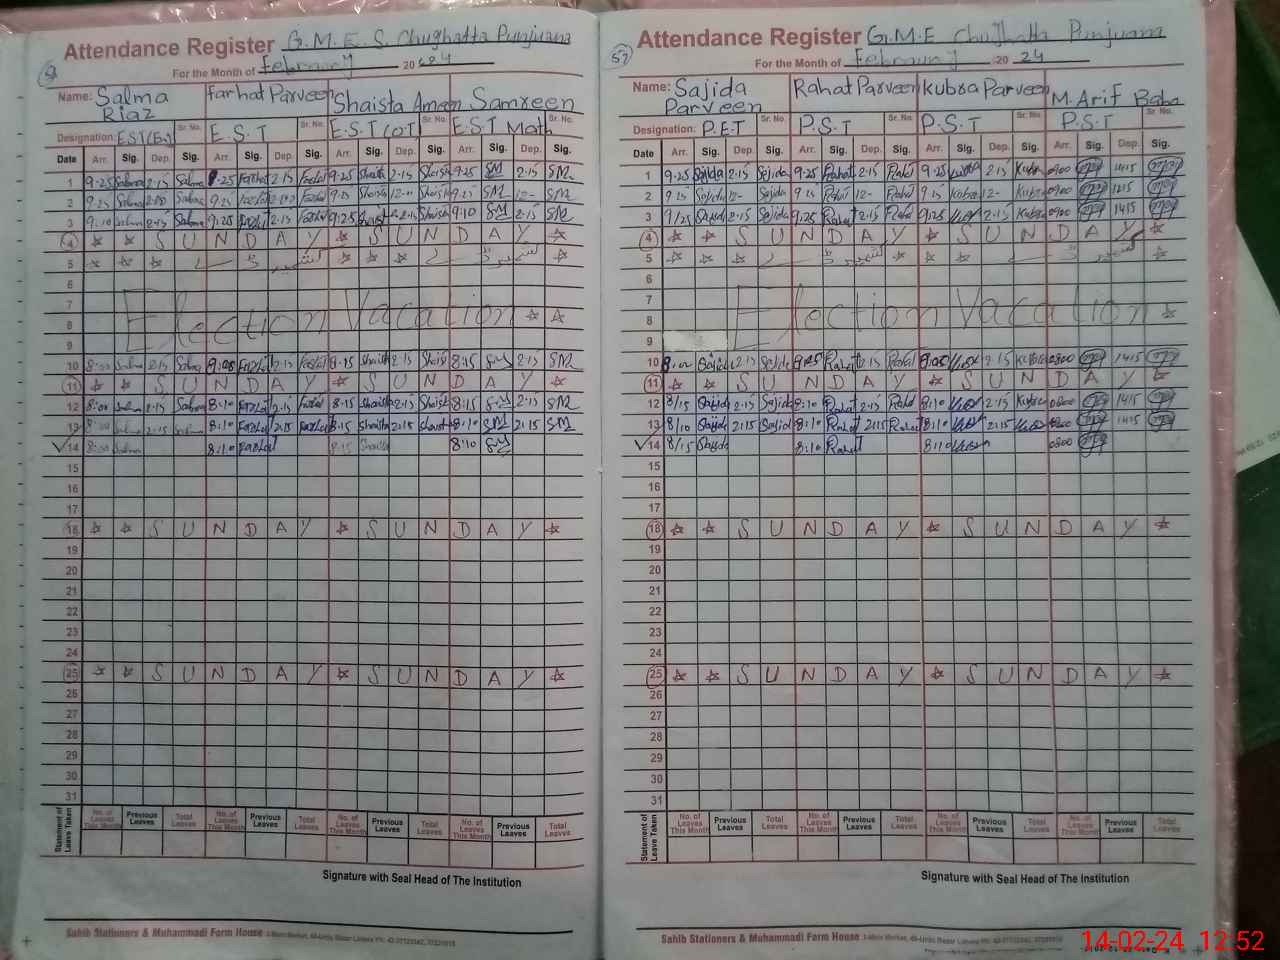 Attendance Register G.M.E.S. Chughatta Punjuana
For the Month of February 2024
Name: Salma Riaz Farhat Parveen Shaista Ameen Samreen
Designation: E.S.T Sr. No. E.S.T Sr. No. E.S.T Sr. No. E.S.T Math Sr. No.
Date Arr. Sig. Dep. Sig. Arr. Sig. Dep. Sig. Arr. Sig. Dep. Sig. Arr. Sig. Dep. Sig.
1 9.25 Salma 2.15 Salma 9.25 Farhat 2.15 Farhat 9.25 Shaista 2.15 Shaista 9.25 SM 2.15 SM
2 9.25 Salma Salma 9.25 Farhat Farhat 9.25 Shaista 12-0 Shaista 9.25 SM 12- SM
3 9.10 Salma 2.15 Salma 9.25 Farhat 2.15 Farhat 9.25 Shaista 2.15 Shaista 9.10 SM 2.15 SM
4 S U N D A Y S U N D A Y
5
6
7
8 Election Vacation
9
10 8:00 Salma 2.15 Salma 9:08 Farhat 2.15 Farhat Shaista 2.15 Shaista 8:15 SM 2.15 SM
11 S U N D A Y S U N D A Y
12 8:00 Salma 2.15 Salma 8:10 Farhat 2.15 Farhat 8.15 Shaista 2.15 Shaista 8:15 SM 2.15 SM
13 8:00 Salma 2:15 Salma 8:10 Farhat 2:15 Farhat 8:15 Shaista 2:15 Shaista 8:10 SM 2:15 SM
14 8:00 Salma 8:10 Farhat 8:15 Shaista 8:10 SM
15
16
17
18 S U N D A Y S U N D A Y
19
20
21
22
23
24
25 S U N D A Y S U N D A Y
26
27
28
29
30
31
Statement of Leave Taken No. of Leaves This Month Previous Leaves Total Leaves No. of Leaves This Month Previous Leaves Total Leaves No. of Leaves This Month Previous Leaves Total Leaves No. of Leaves This Month Previous Leaves Total Leaves
Signature with Seal Head of The Institution
Sahib Stationers & Muhammadi Form House
57
Attendance Register G.M.E Chughatta Punjuana
For the Month of February 2024
Name: Sajida Parveen Rahat Parveen Kubra Parveen M. Arif Baba
Designation: P.E.T Sr. No. P.S.T Sr. No. P.S.T Sr. No. P.S.T Sr. No.
Date Arr. Sig. Dep. Sig. Arr. Sig. Dep. Sig. Arr. Sig. Dep. Sig. Arr. Sig. Dep. Sig.
1 9.25 Sajida 2.15 Sajida 9.25 Rahat 2.15 Rahat 9.25 Kubra 2.15 Kubra 0900 1415
2 9.25 Sajida 12- Sajida 9.25 Rahat 12- Rahat 9.15 Kubra 12- Kubra 0900 1215
3 9/25 Sajida 2.15 Sajida 9.25 Rahat 2.15 Rahat 9.25 2.15 Kubra 0900 1415
4 S U N D A Y S U N D A Y
5
6
7
8 Election Vacation
9
10 8:00 Sajida 2.15 Sajida Rahat 2.15 Rahat 2.15 Kubra 0800 1415
11 S U N D A Y S U N D A Y
12 8/15 Sajida 2.15 Sajida 8:10 Rahat 2.15 Rahat 8:10 2.15 Kubra 0800 1415
13 8/10 Sajida 2:15 Sajida 8:10 Rahat 2:15 Rahat 8:10 2:15 0800 1415
14 8/15 Sajida 8:10 Rahat 8:10 0800
15
16
17
18 S U N D A Y S U N D A Y
19
20
21
22
23
24
25 S U N D A Y S U N D A Y
26
27
28
29
30
31
Statement of Leave Taken No. of Leaves This Month Previous Leaves Total Leaves No. of Leaves This Month Previous Leaves Total Leaves No. of Leaves This Month Previous Leaves Total Leaves No. of Leaves This Month Previous Leaves Total Leaves
Signature with Seal Head of The Institution
Sahib Stationers & Muhammadi Form House
14-02-24 12:52